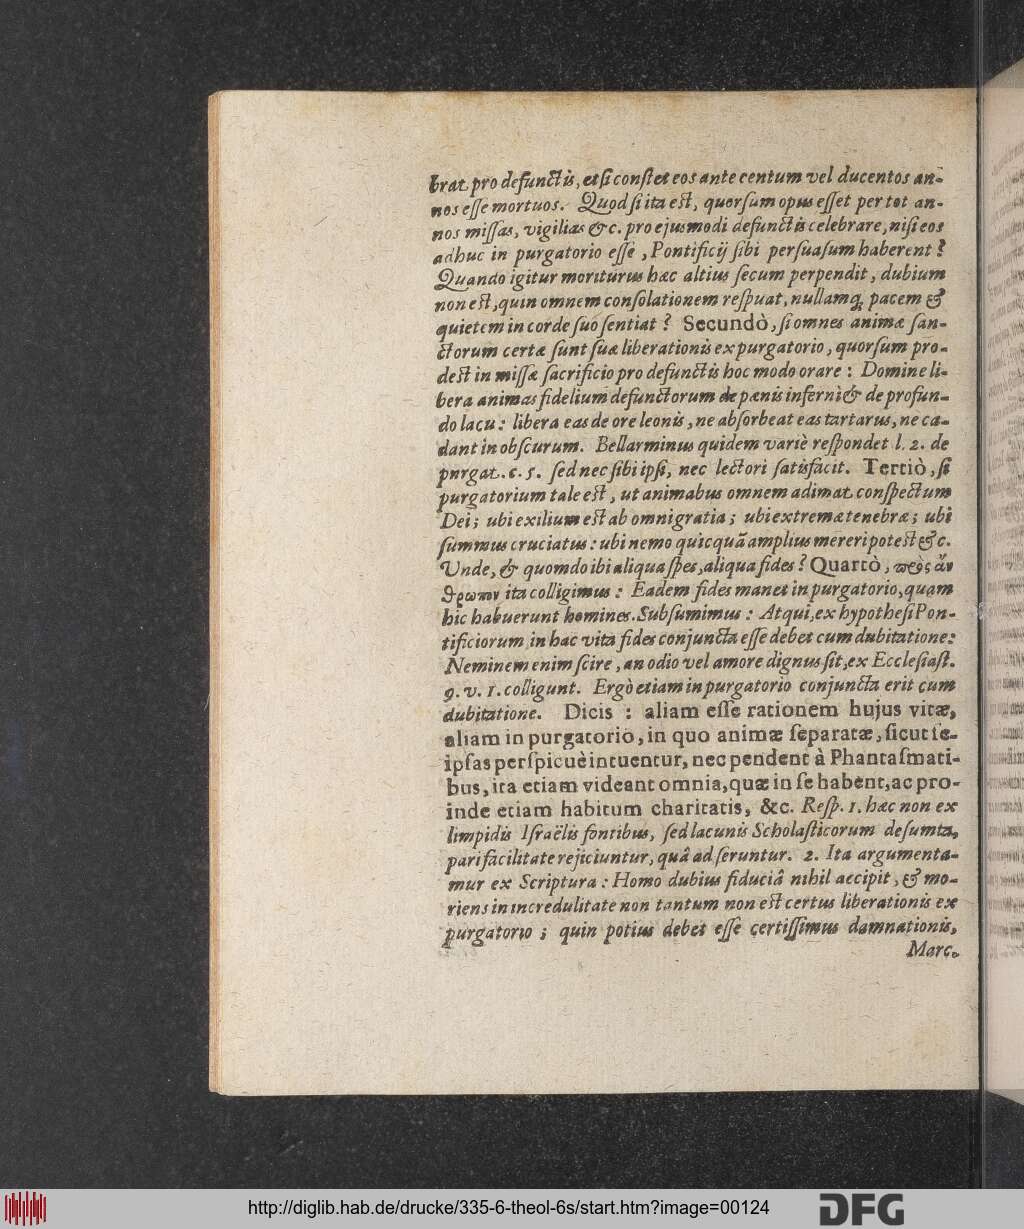 brat pro defunctis, etsi constet eos ante centum vel ducentos an-
nos esse mortuos. Quod si ita est, quorsum opus esset per tot an-
nos missas, vigilias &c. pro ejusmodi defunctis celebrare, nisi eos
adhuc in purgatorio esse, Pontificij sibi persuasum haberent?
Quando igitur moriturus hæc altius secum perpendit, dubium
non est, quin omnem consolationem respuat, nullamq; pacem &
quietem in corde suo sentiat? Secundò, si omnes animæ san-
ctorum certæ sunt suæ liberationis ex purgatorio, quorsum pro-
dest in missæ sacrificio pro defunctis hoc modo orare: Domine li-
bera animas fidelium defunctorum de pœnis inferni & de profun-
do lacu: libera eas de ore leonis, ne absorbeat eas tartarus, ne ca-
dant in obscurum. Bellarminus quidem variè respondet l. 2. de
pnrgat. c. 5. sed nec sibi ipsi, nec lectori satisfacit. Tertiò, si
purgatorium tale est, ut animabus omnem adimat conspectum
Dei; ubi exilium est ab omni gratia; ubi extremæ tenebræ; ubi
summus cruciatus: ubi nemo quicquã amplius mereri potest &c.
Unde, & quomdo ibi aliqua spes, aliqua fides? Quartò, πρὸς ἄν
θρωπον ita colligimus: Eadem fides manet in purgatorio, quam
hic habuerunt homines. Subsumimus: Atqui, ex hypothesi Pon-
tificiorum in hac vita fides conjuncta esse debet cum dubitatione:
Neminem enim scire, an odio vel amore dignus sit, ex Ecclesiast.
9. v. 1. colligunt. Ergò etiam in purgatorio conjuncta erit cum
dubitatione. Dicis: aliam esse rationem hujus vitæ,
aliam in purgatorio, in quo animæ separatæ, sicut se-
ipsas perspicuè intuentur, nec pendent à Phantasmati-
bus, ita etiam videant omnia, quæ in se habent, ac pro-
inde etiam habitum charitatis, &c. Resp. 1. hæc non ex
limpidis Israëlis fontibus, sed lacunis Scholasticorum desumta,
pari facilitate rejiciuntur, quâ adseruntur. 2. Ita argumenta-
mur ex Scriptura: Homo dubius fiduciâ nihil accipit, & mo-
riens in incredulitate non tantum non est certus liberationis ex
purgatorio; quin potius debet esse certissimus damnationis,
Marc.
http://diglib.hab.de/drucke/335-6-theol-6s/start.htm?image=00124
DFG